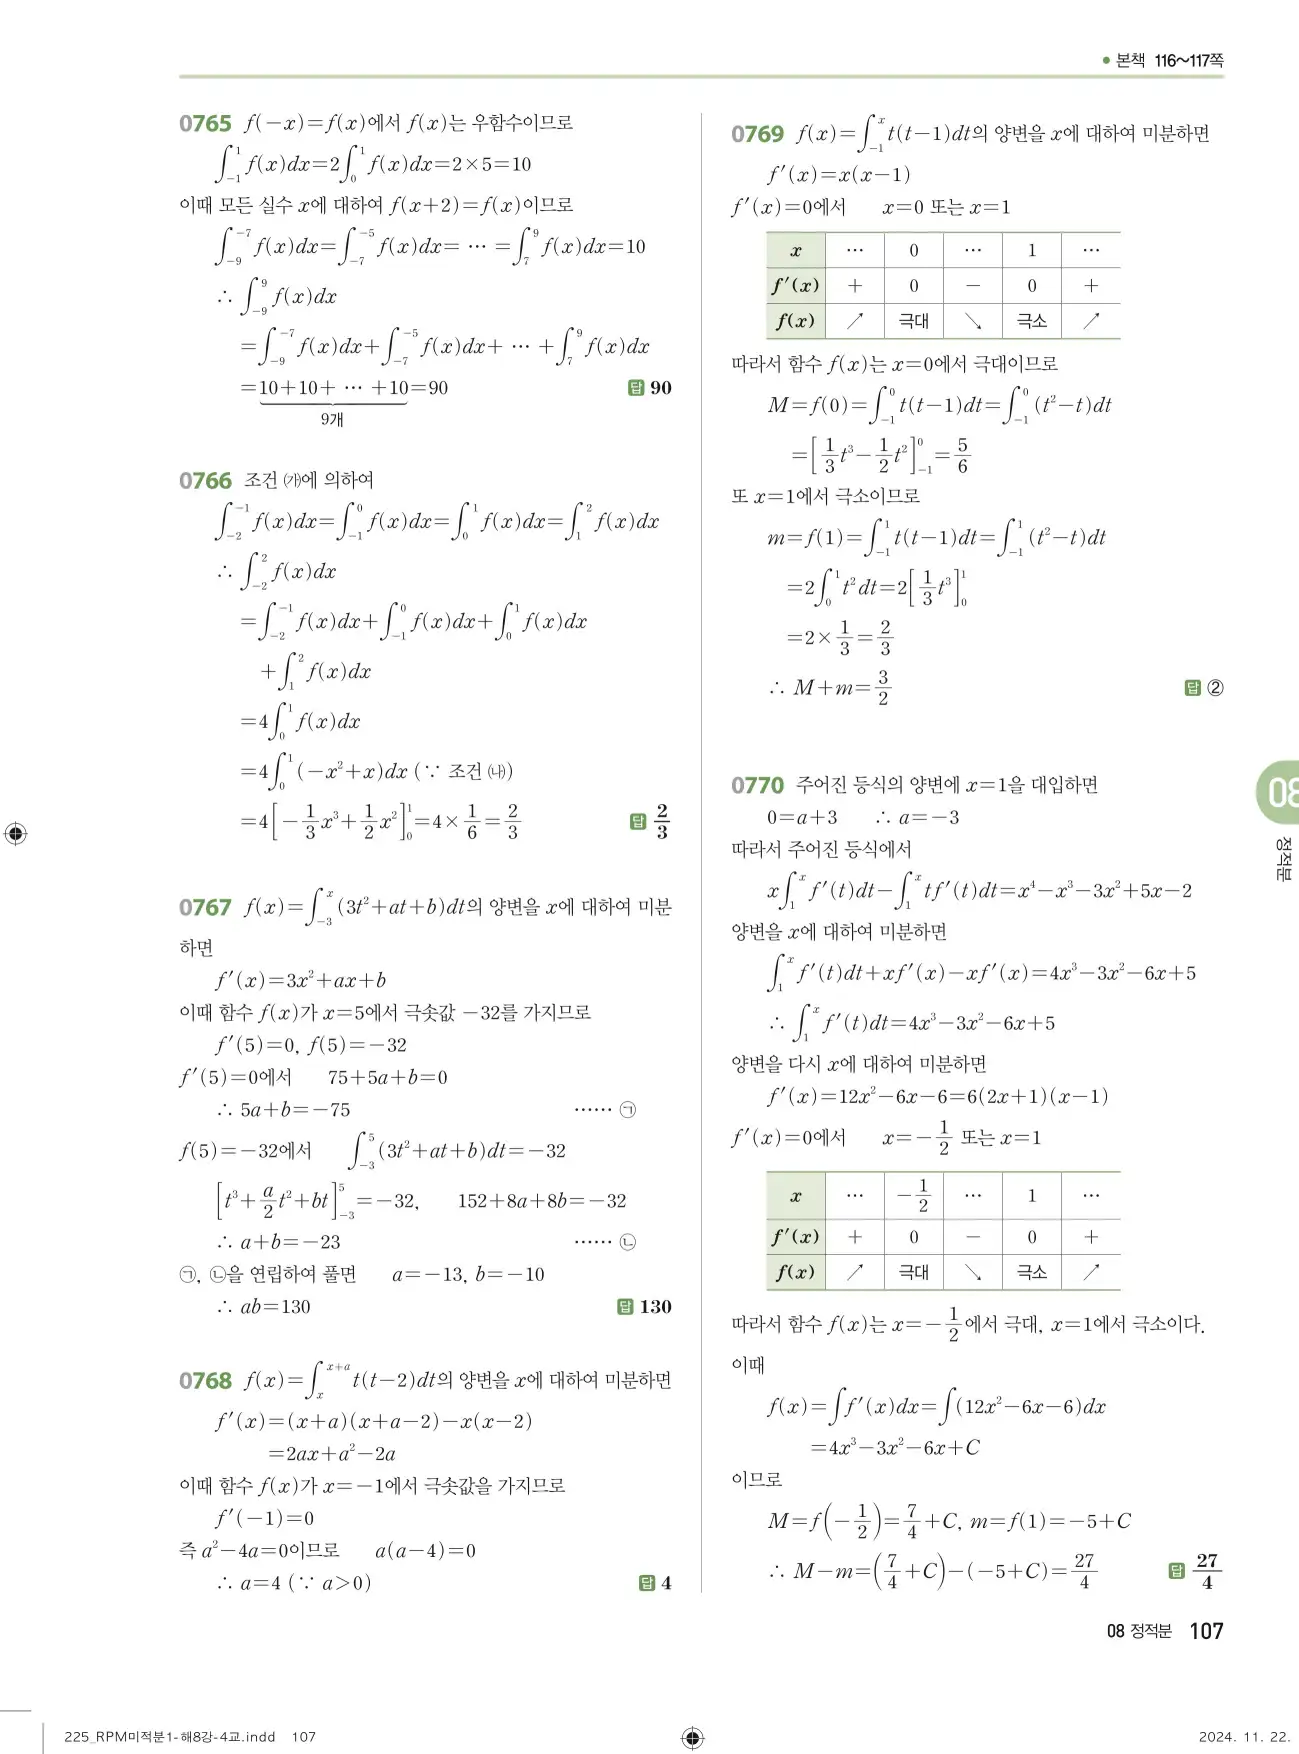 본책 116~117쪽
0765 f(-x)=f(x)에서 f(x)는 우함수이므로
∫_{-1}^{1} f(x)dx=2∫_{0}^{1} f(x)dx=2×5=10
이때 모든 실수 x에 대하여 f(x+2)=f(x)이므로
∫_{-9}^{-7} f(x)dx=∫_{-7}^{-5} f(x)dx= … =∫_{7}^{9} f(x)dx=10
∴ ∫_{-9}^{9} f(x)dx
=∫_{-9}^{-7} f(x)dx+∫_{-7}^{-5} f(x)dx+ … +∫_{7}^{9} f(x)dx
=10+10+ … +10=90 답 90
9개
0766 조건 ㈎에 의하여
∫_{-2}^{-1} f(x)dx=∫_{-1}^{0} f(x)dx=∫_{0}^{1} f(x)dx=∫_{1}^{2} f(x)dx
∴ ∫_{-2}^{2} f(x)dx
=∫_{-2}^{-1} f(x)dx+∫_{-1}^{0} f(x)dx+∫_{0}^{1} f(x)dx
+∫_{1}^{2} f(x)dx
=4∫_{0}^{1} f(x)dx
=4∫_{0}^{1} (-x²+x)dx (∵ 조건 ㈏)
=4[-1/3 x³+1/2 x²]_{0}^{1}=4×1/6=2/3 답 2/3
0767 f(x)=∫_{-3}^{x} (3t²+at+b)dt의 양변을 x에 대하여 미분
하면
f′(x)=3x²+ax+b
이때 함수 f(x)가 x=5에서 극솟값 -32를 가지므로
f′(5)=0, f(5)=-32
f′(5)=0에서 75+5a+b=0
∴ 5a+b=-75 …… ㉠
f(5)=-32에서 ∫_{-3}^{5} (3t²+at+b)dt=-32
[t³+a/2 t²+bt]_{-3}^{5}=-32, 152+8a+8b=-32
∴ a+b=-23 …… ㉡
㉠, ㉡을 연립하여 풀면 a=-13, b=-10
∴ ab=130 답 130
0768 f(x)=∫_{x}^{x+a} t(t-2)dt의 양변을 x에 대하여 미분하면
f′(x)=(x+a)(x+a-2)-x(x-2)
=2ax+a²-2a
이때 함수 f(x)가 x=-1에서 극솟값을 가지므로
f′(-1)=0
즉 a²-4a=0이므로 a(a-4)=0
∴ a=4 (∵ a>0) 답 4
0769 f(x)=∫_{-1}^{x} t(t-1)dt의 양변을 x에 대하여 미분하면
f′(x)=x(x-1)
f′(x)=0에서 x=0 또는 x=1
x … 0 … 1 …
f′(x) + 0 - 0 +
f(x) ↗ 극대 ↘ 극소 ↗
따라서 함수 f(x)는 x=0에서 극대이므로
M=f(0)=∫_{-1}^{0} t(t-1)dt=∫_{-1}^{0} (t²-t)dt
=[1/3 t³-1/2 t²]_{-1}^{0}=5/6
또 x=1에서 극소이므로
m=f(1)=∫_{-1}^{1} t(t-1)dt=∫_{-1}^{1} (t²-t)dt
=2∫_{0}^{1} t² dt=2[1/3 t³]_{0}^{1}
=2×1/3=2/3
∴ M+m=3/2 답 ②
0770 주어진 등식의 양변에 x=1을 대입하면
0=a+3 ∴ a=-3
따라서 주어진 등식에서
x∫_{1}^{x} f′(t)dt-∫_{1}^{x} tf′(t)dt=x⁴-x³-3x²+5x-2
양변을 x에 대하여 미분하면
∫_{1}^{x} f′(t)dt+xf′(x)-xf′(x)=4x³-3x²-6x+5
∴ ∫_{1}^{x} f′(t)dt=4x³-3x²-6x+5
양변을 다시 x에 대하여 미분하면
f′(x)=12x²-6x-6=6(2x+1)(x-1)
f′(x)=0에서 x=-1/2 또는 x=1
x … -1/2 … 1 …
f′(x) + 0 - 0 +
f(x) ↗ 극대 ↘ 극소 ↗
따라서 함수 f(x)는 x=-1/2에서 극대, x=1에서 극소이다.
이때
f(x)=∫f′(x)dx=∫(12x²-6x-6)dx
=4x³-3x²-6x+C
이므로
M=f(-1/2)=7/4+C, m=f(1)=-5+C
∴ M-m=(7/4+C)-(-5+C)=27/4 답 27/4
08
정적분
08 정적분 107
225_RPM미적분1-해8강-4교.indd 107
2024. 11. 22.